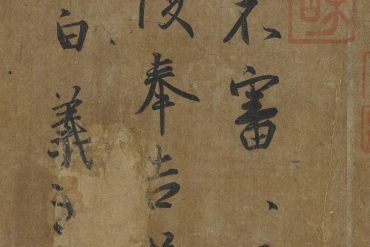 不審、
復奉告
白羲之